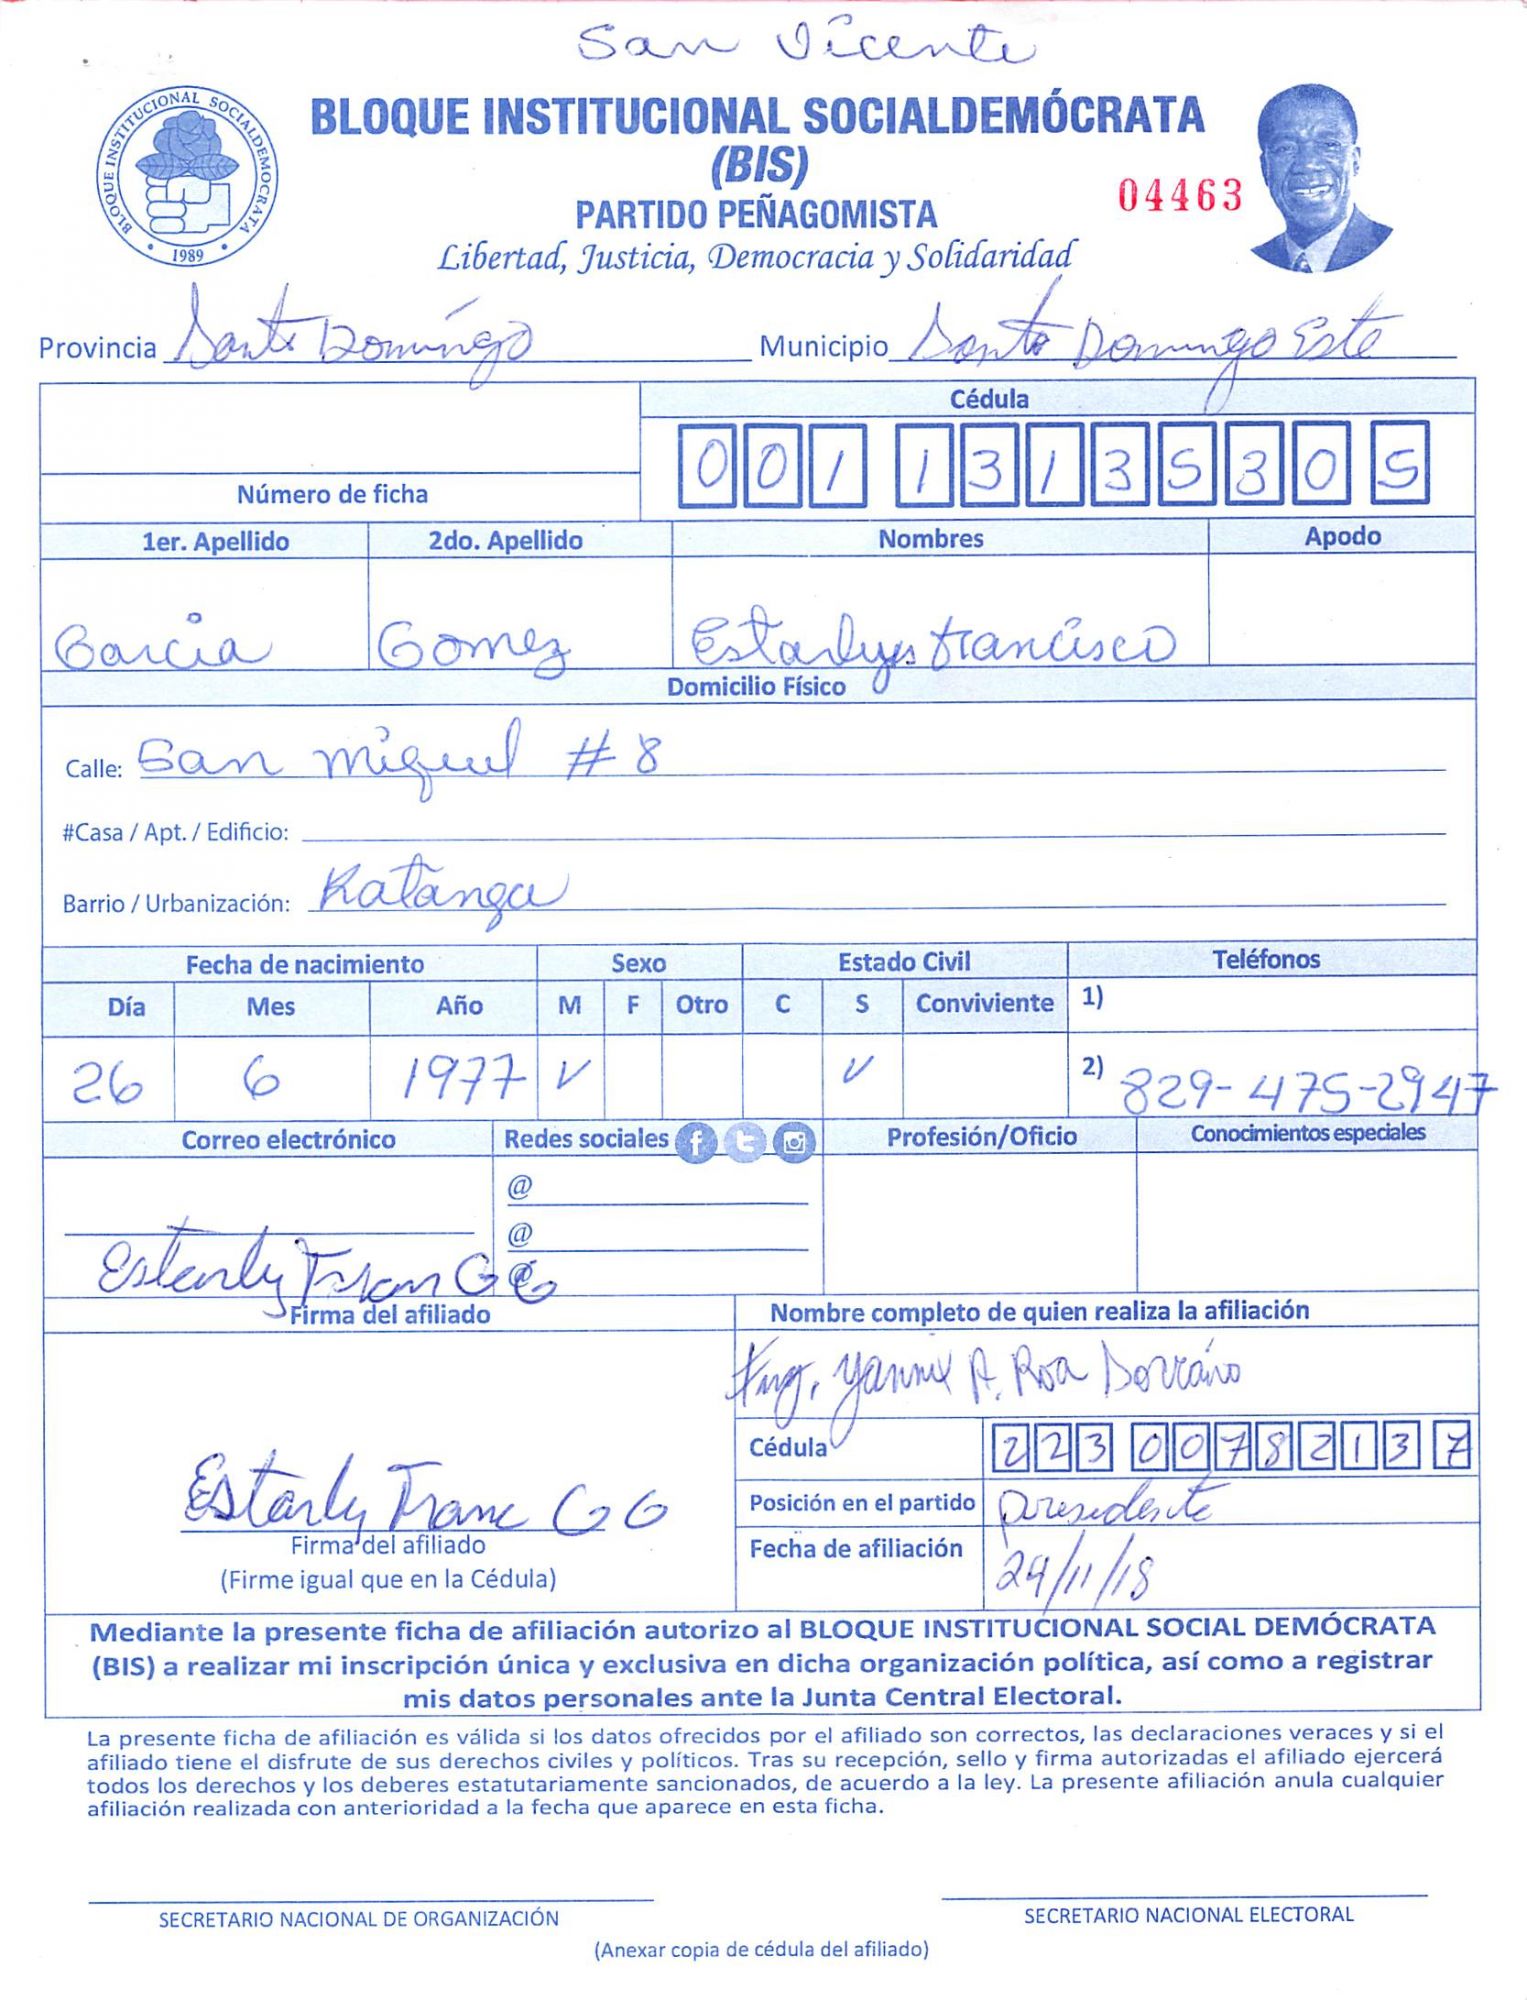 San Vicente
BLOQUE INSTITUCIONAL SOCIALDEMOCRATA
1989
BLOQUE INSTITUCIONAL SOCIALDEMÓCRATA
(BIS)
04463
PARTIDO PEÑAGOMISTA
Libertad, Justicia, Democracia y Solidaridad
Provincia Santo Domingo Municipio Santo Domingo Este
Cédula
001 1313530 5
Número de ficha
1er. Apellido 2do. Apellido Nombres Apodo
Garcia Gomez Estarlyes Francisco
Domicilio Físico
Calle: San Miguel # 8
#Casa / Apt. / Edificio:
Barrio / Urbanización: Katanga
Fecha de nacimiento Sexo Estado Civil Teléfonos
Día Mes Año M F Otro C S Conviviente 1)
26 6 1977 V V 2) 829-475-2947
Correo electrónico Redes sociales Profesión/Oficio Conocimientos especiales
@
@
@
Estarly Fran G G
Firma del afiliado Nombre completo de quien realiza la afiliación
Ing. Yannix A. Rosa
Cédula 223 0078213 7
Posición en el partido presidente
Estarly Franc G G
Firma del afiliado Fecha de afiliación 29/11/18
(Firme igual que en la Cédula)
Mediante la presente ficha de afiliación autorizo al BLOQUE INSTITUCIONAL SOCIAL DEMÓCRATA
(BIS) a realizar mi inscripción única y exclusiva en dicha organización política, así como a registrar
mis datos personales ante la Junta Central Electoral.
La presente ficha de afiliación es válida si los datos ofrecidos por el afiliado son correctos, las declaraciones veraces y si el
afiliado tiene el disfrute de sus derechos civiles y políticos. Tras su recepción, sello y firma autorizadas el afiliado ejercerá
todos los derechos y los deberes estatutariamente sancionados, de acuerdo a la ley. La presente afiliación anula cualquier
afiliación realizada con anterioridad a la fecha que aparece en esta ficha.
SECRETARIO NACIONAL DE ORGANIZACIÓN SECRETARIO NACIONAL ELECTORAL
(Anexar copia de cédula del afiliado)